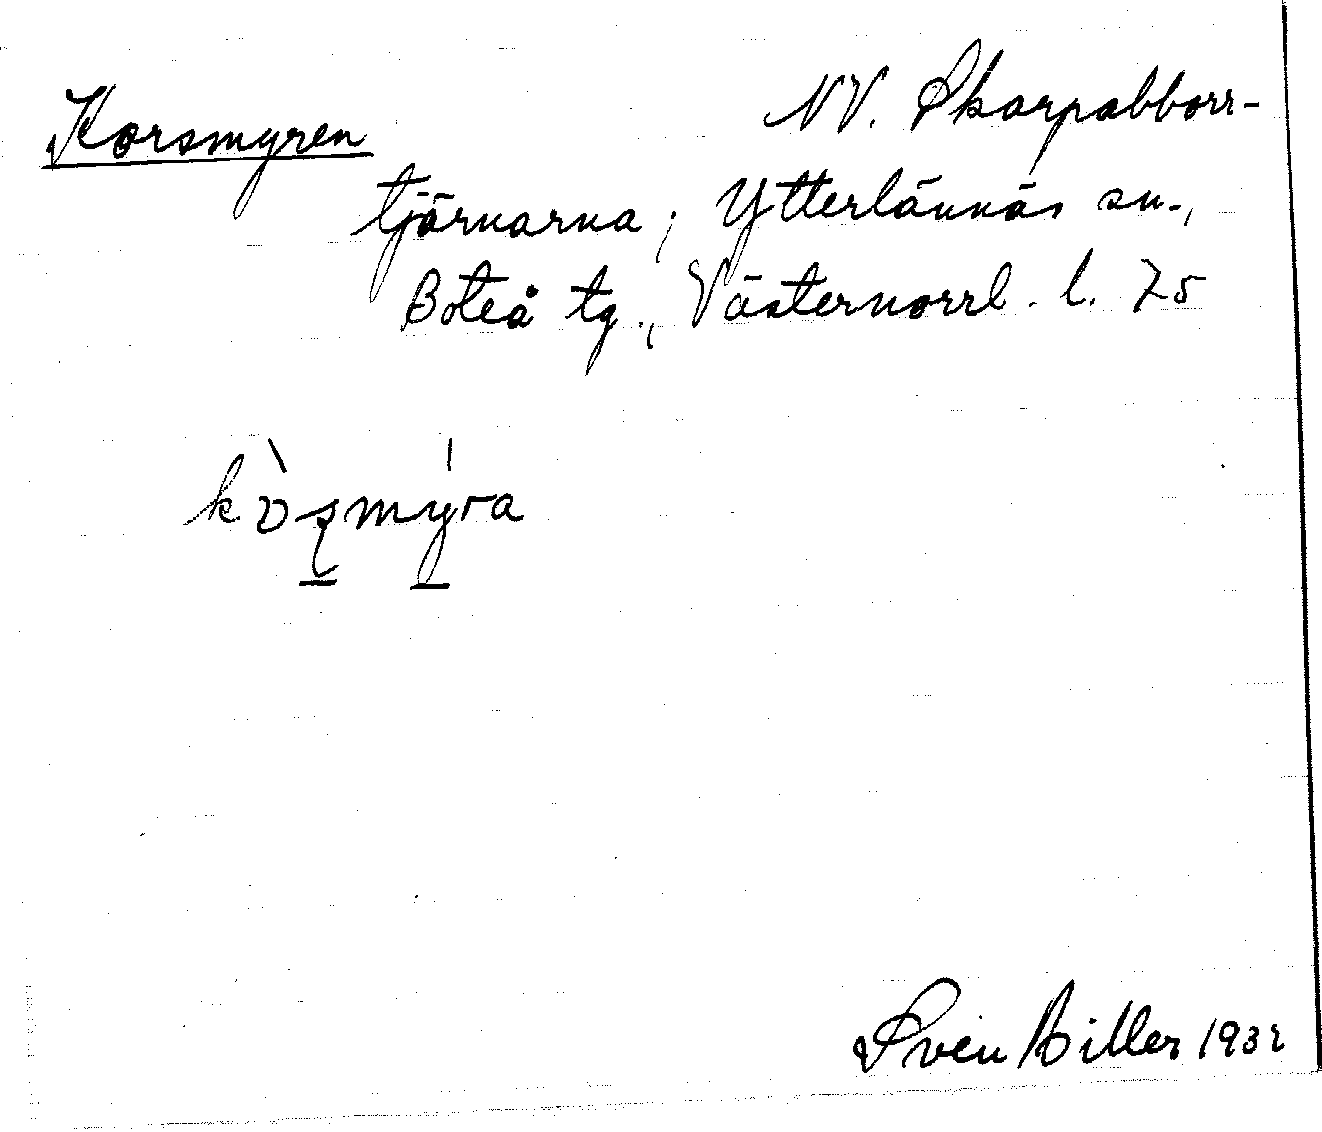 Korsmyren NV. Skarpabborr-
tjärnarna; Ytterlännäs sn.,
Boteå tg., Västernorrl. l. 75
kòʂmýra
Sven Biller 1932